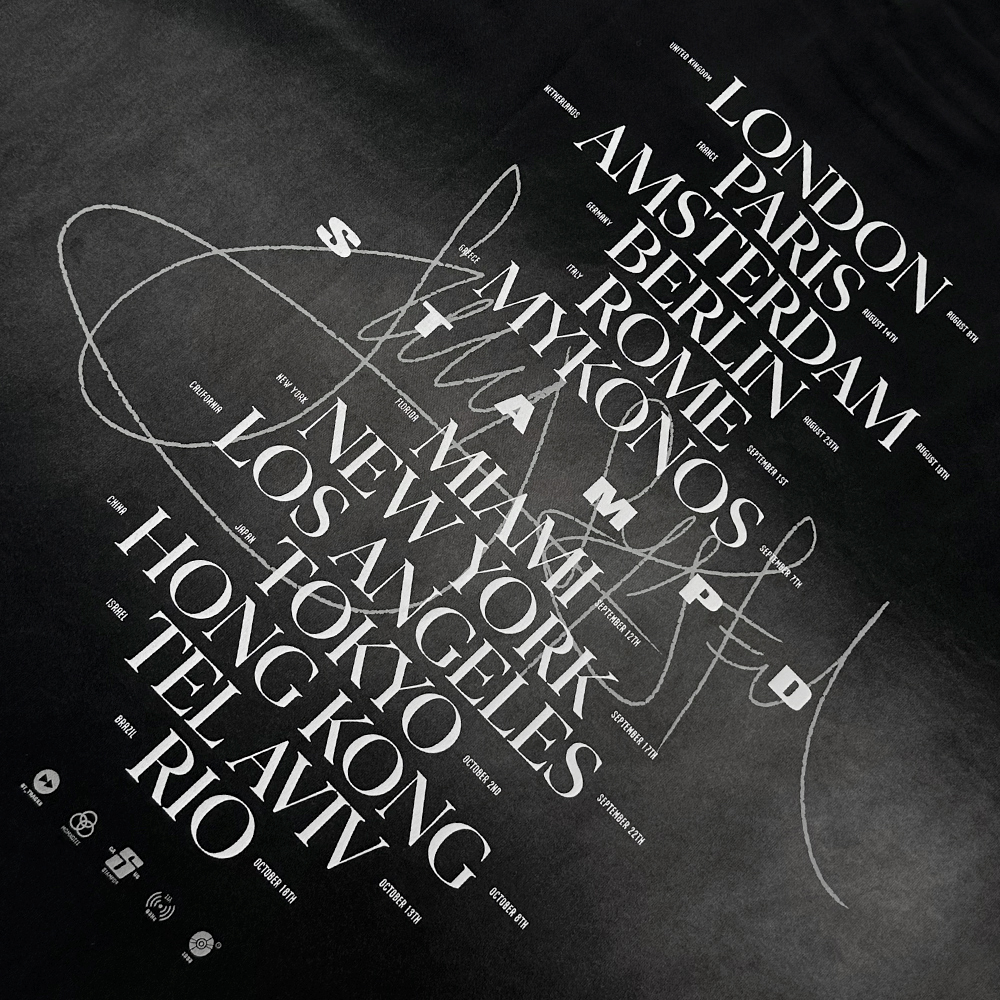 UNITED KINGDOM LONDON AUGUST 8TH
FRANCE PARIS AUGUST 14TH
NETHERLANDS AMSTERDAM AUGUST 18TH
GERMANY BERLIN AUGUST 23TH
ITALY ROME SEPTEMBER 1ST
GREECE MYKONOS SEPTEMBER 7TH
S T A M P D
FLORIDA MIAMI SEPTEMBER 12TH
NEW YORK NEW YORK SEPTEMBER 17TH
CALIFORNIA LOS ANGELES SEPTEMBER 22TH
JAPAN TOKYO OCTOBER 2ND
CHINA HONG KONG OCTOBER 8TH
ISRAEL TEL AVIV OCTOBER 13TH
BRAZIL RIO OCTOBER 18TH